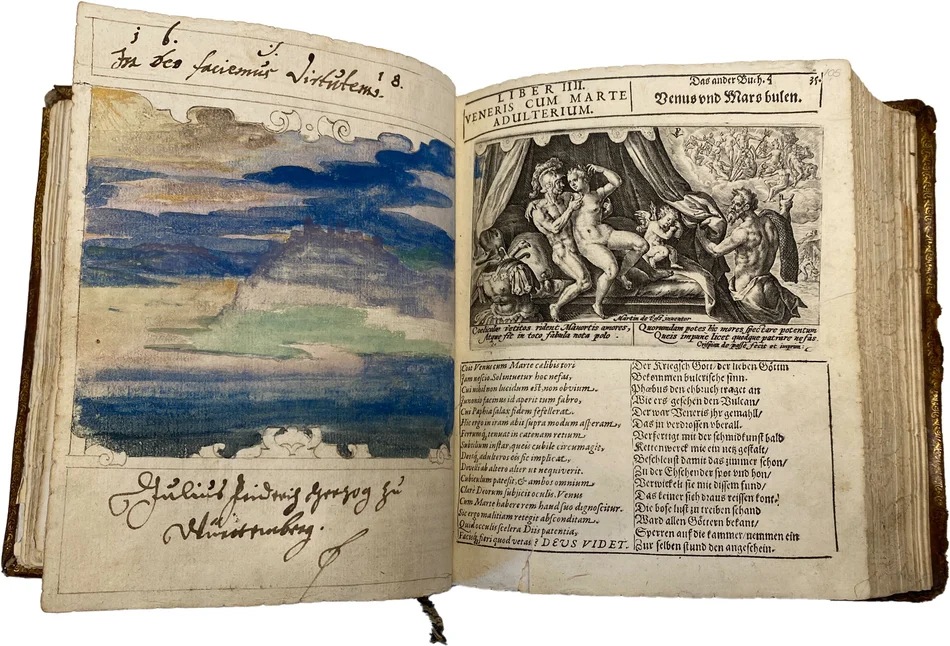 1 6.
In deo faciemus Virtutem.
1 8.
Julius Friderich Herzog zu
Württemberg.
LIBER IIII.
VENERIS CUM MARTE
ADULTERIUM.
Das ander Buch.
Venus vnd Mars bulen.
35.
105
Martin de Vos inventor
Coelicolae vetitos rident Mavortis amores,
Atque fit in toto fabula nota polo.
Quorundam potes hic mores spectare potentum
Queis impune licet quaeque patrare nefas.
Crispin de passe fecit et imprim:
Coit Venus cum Marte calibis tori
Jam nescio. Sol intuetur hoc nefas,
Cui nihil non lucidum est, non obvium.
Junonis facinus id aperit tum fabro,
Cui Paphia salax fidem fefellerat.
Hic ergo in iram abit supra modum asperam,
Ferrumq; tenuat in catenam retium
Subtilium instar, queis cubile circumagit,
Deosq; adulteros eis sic implicat,
Divelli ab altero alter ut nequiverit.
Cubiculum patefit, & ambos omnium
Clare Deorum subjicit oculis. Venus
Cum Marte habere rem haud suo dignoscitur.
Sic ergo malitiam retegit absconditam.
Quid occulis scelera Diis patentia,
Facinus, fieri quod vetas? DEUS VIDET.
Der Kriegsch Gott/ der lieben Göttin
Bekommen bulerische sinn.
Phœbus den ehbruch traget an
Wie ers gesehen den Vulcan/
Der war Veneris ihr gemahll/
Das in verdrossen vberall.
Verfertigt mit der schmidkunst bald
Kettenwerck wie ein netz gestalt/
Beschleust damit das zimmer schon/
Zu der Ehschender spot vnd hon/
Verwickelt sie mit dissem fund/
Das keiner sich draus reissen kont.
Die böse lust zu treiben schand
Ward allen Göttern bekant/
Sperren auf die kammer/ nemmen ein
Zur selben stund den angeschein.